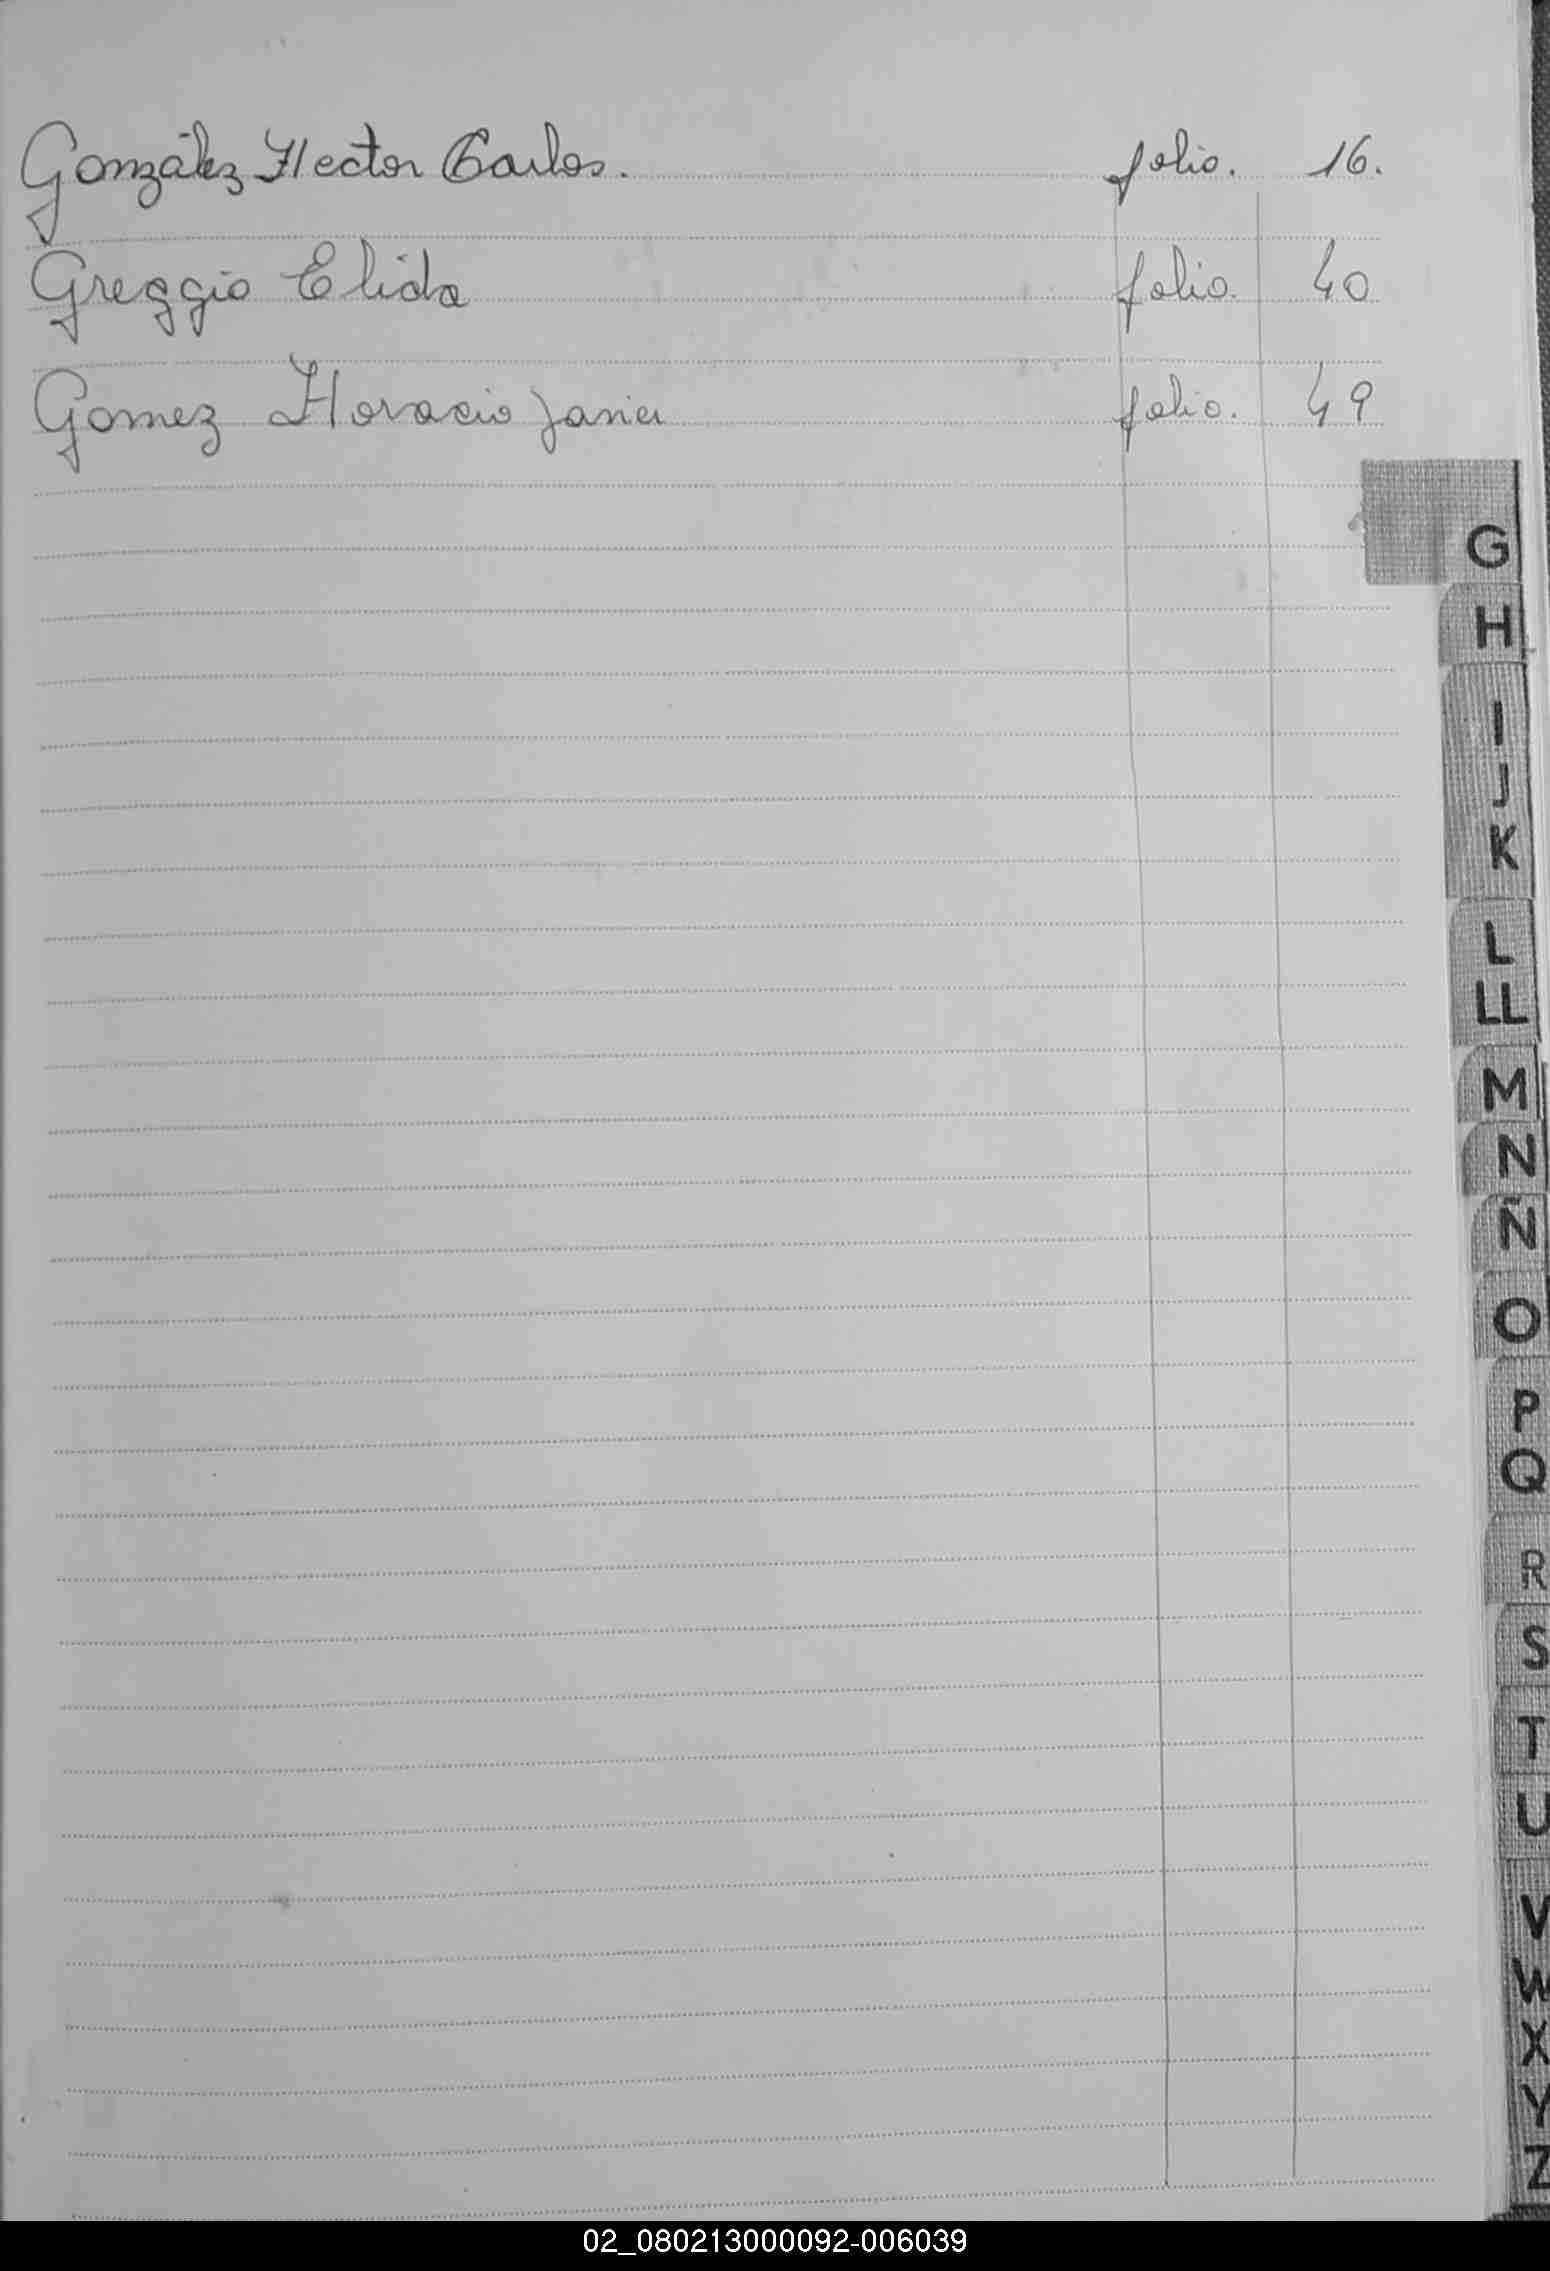 González Hector Carlos. folio. 16.
Greggio Elida folio. 40
Gomez Horacio Javier folio. 49
G
H
I
J
K
L
LL
M
N
Ñ
O
P
Q
R
S
T
U
V
W
X
Y
Z
02_080213000092-006039